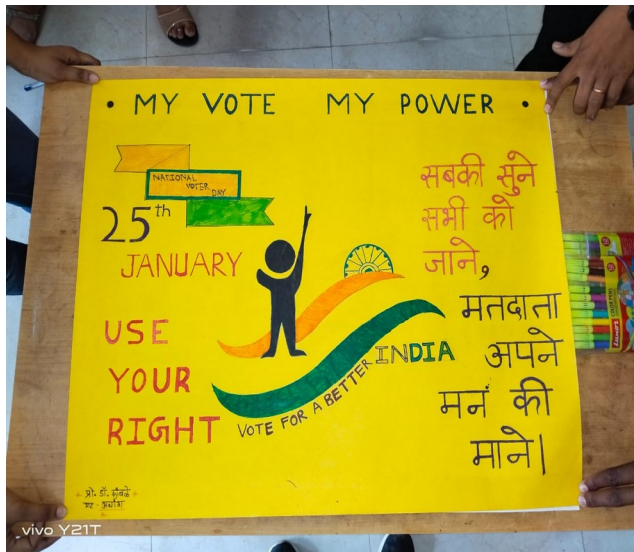 • MY VOTE MY POWER •
NATIONAL
VOTER
DAY
25th
JANUARY
USE
YOUR
RIGHT
VOTE FOR A BETTER INDIA
सबकी सुने
सभी को
जाने,
मतदाता
अपने
मन की
माने।
प्रो. डॉ.
vivo Y21T